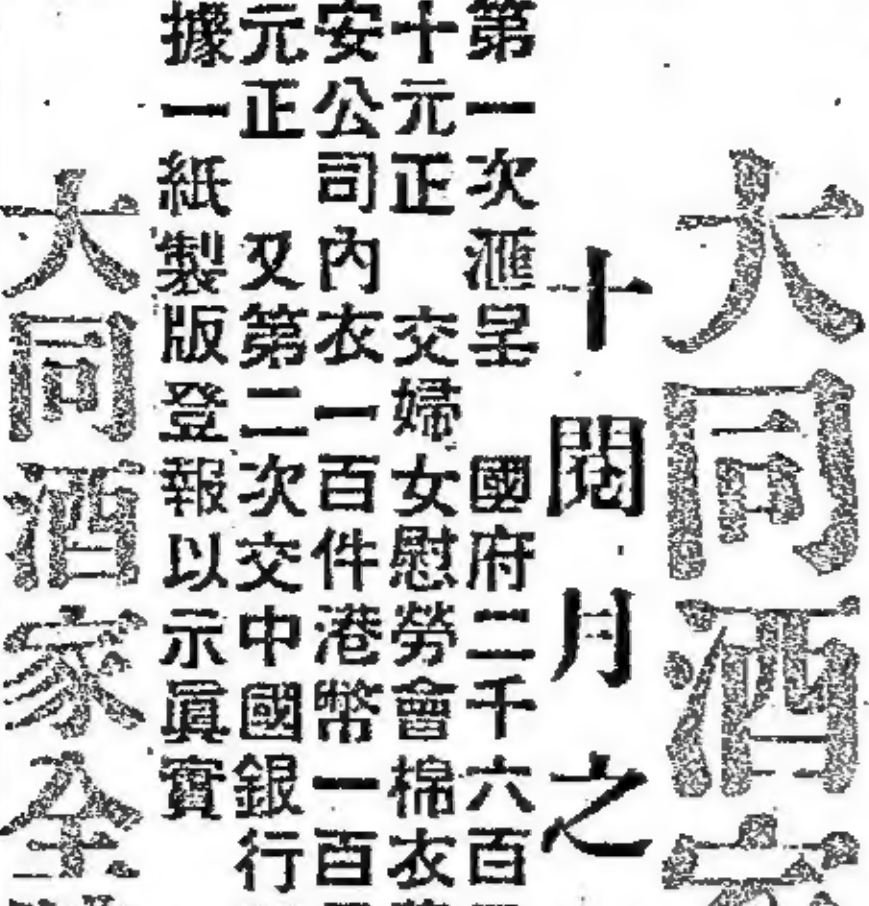 大同酒家
十閱月之
第一次滙呈 國府二千六百
十元正 交婦女慰勞會棉衣
安公司內衣一百件港幣一百
元正 又第二次交中國銀行
據一紙製版登報以示眞實
大同酒家全